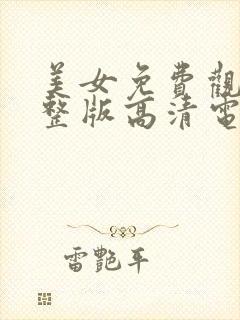 美女免費觀
整版高清電
雷艷平